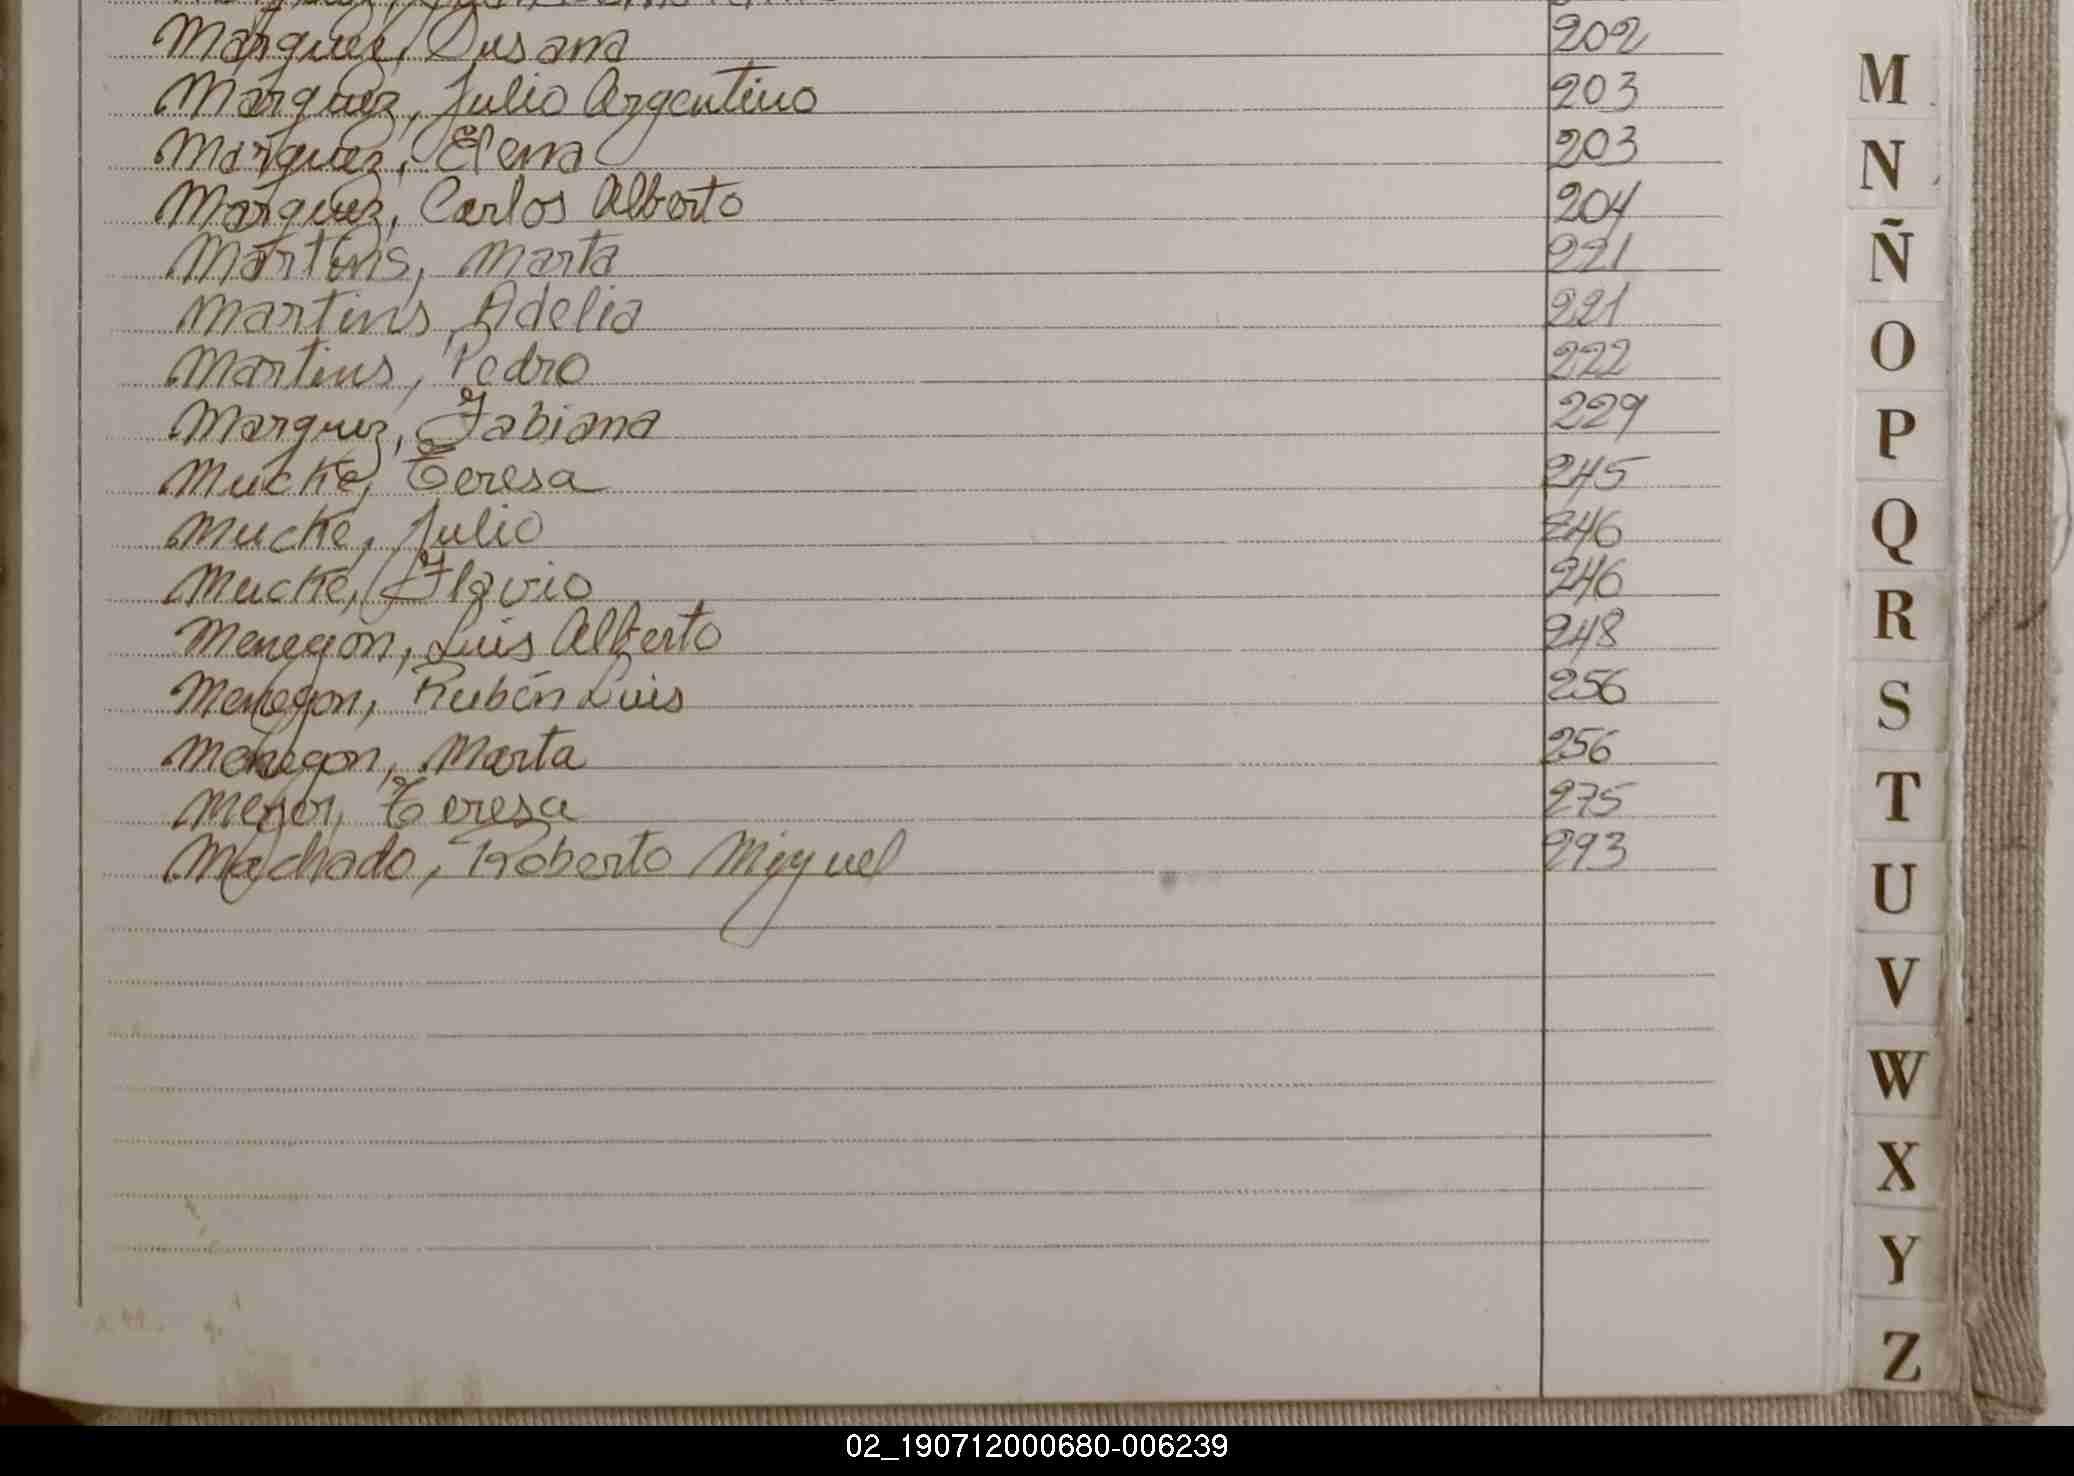 Marquez, Susana 202
Marquez, Julio Argentino 203
Marquez, Elena 203
Marquez, Carlos Alberto 204
Martins, Marta 221
Martins, Adelia 221
Martins, Pedro 222
Marquez, Fabiana 229
Mucke, Teresa 245
Mucke, Julio 246
Mucke, Flavio 246
Menegon, Luis Alberto 248
Menegon, Rubén Luis 256
Menegon, Marta 256
Menor, Teresa 275
Machado, Roberto Miguel 293
M
N
Ñ
O
P
Q
R
S
T
U
V
W
X
Y
Z
02_190712000680-006239